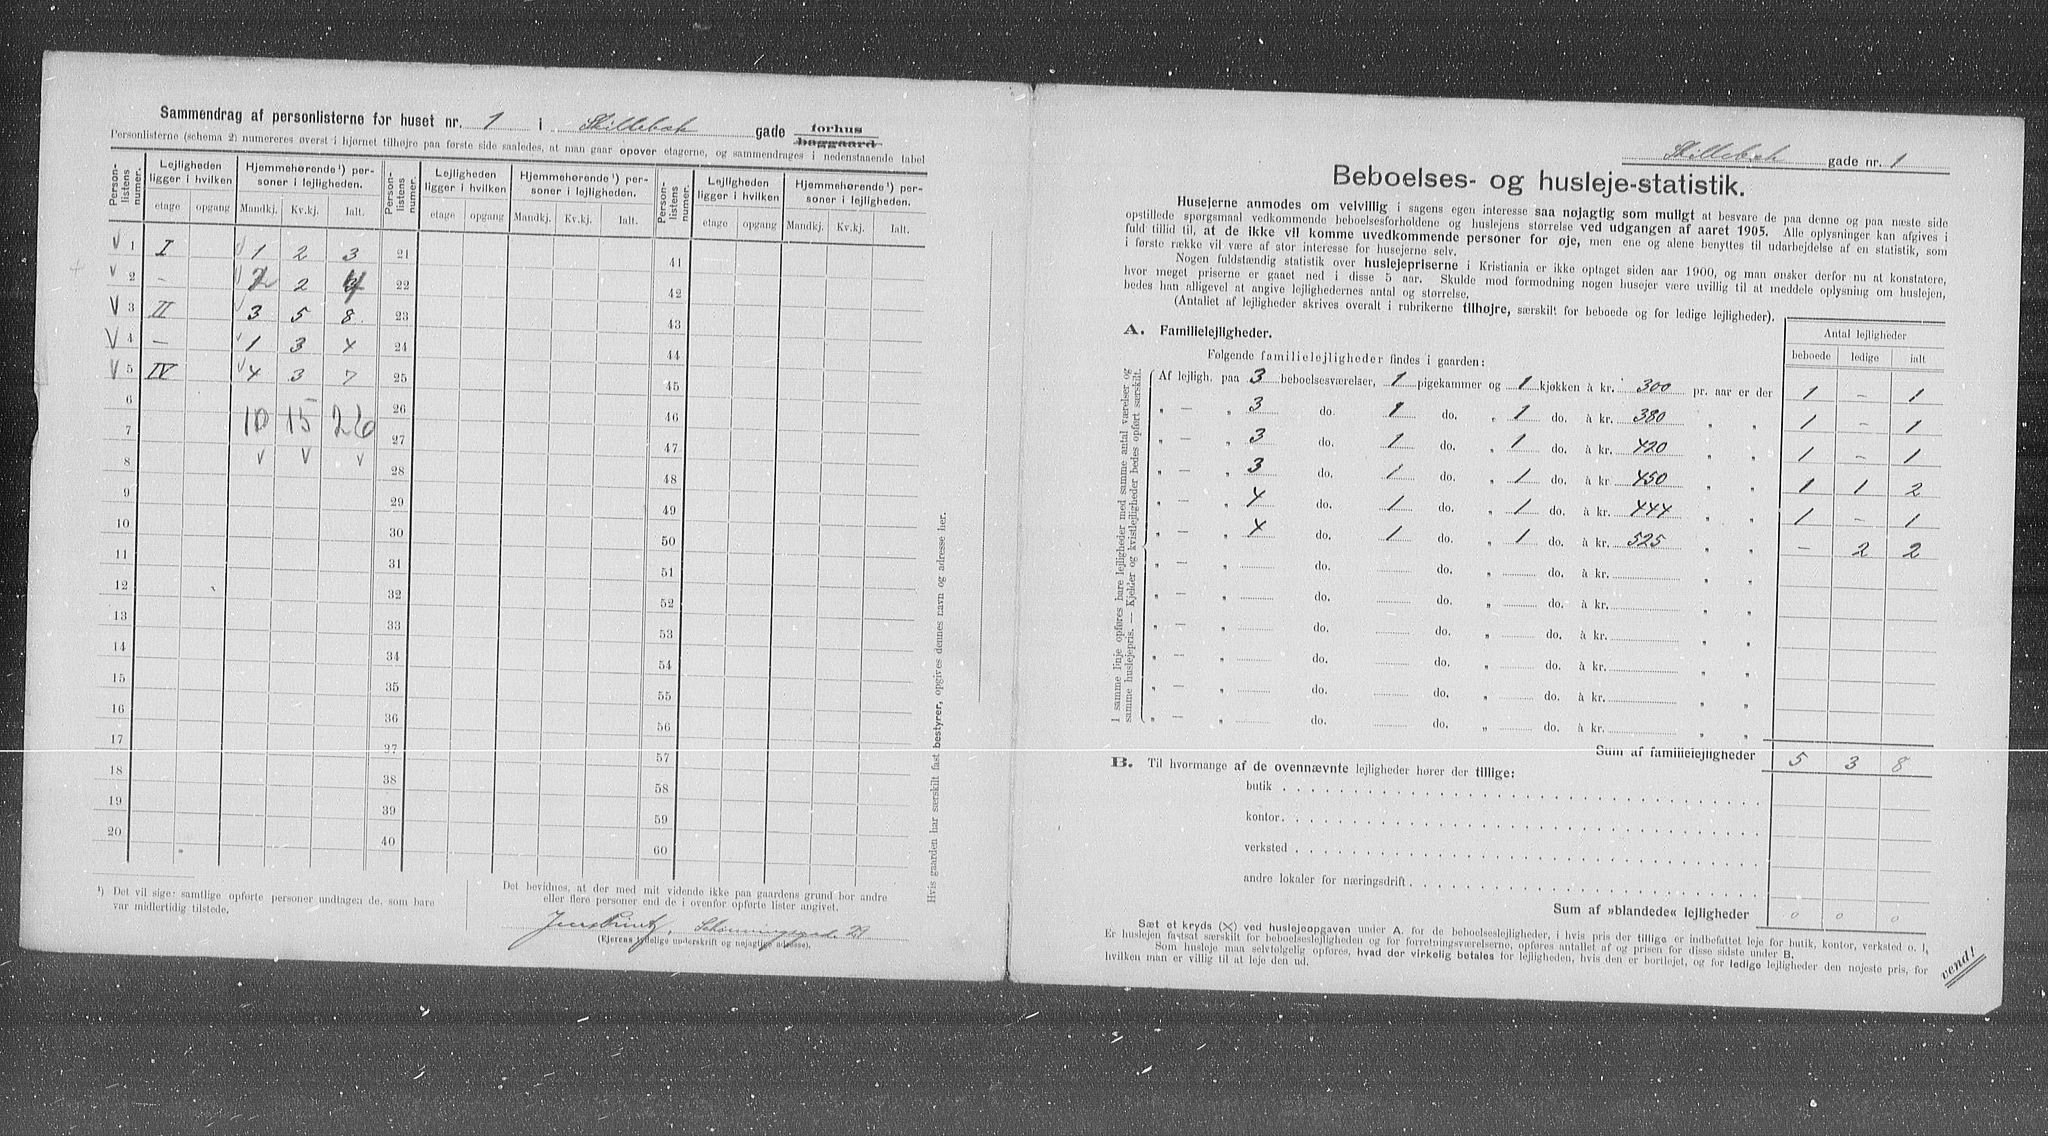 Sammendrag af personlisterne for huset nr. 1 i Skillebæk gade forhus baggaard
Personlisterne (schema 2) numereres øverst i hjørnet tilhøjre paa første side saaledes, at man gaar opover etagerne, og sammendrages i nedenstaaende tabel
Person-listens numer. Lejligheden ligger i hvilken Hjemmehørende ¹) personer i lejligheden. Person-listens numer. Lejligheden ligger i hvilken Hjemmehørende ¹) personer i lejligheden. Person-listens numer. Lejligheden ligger i hvilken Hjemmehørende ¹) personer i lejligheden.
etage opgang Mandkj. Kv.kj. Ialt. etage opgang Mandkj. Kv.kj. Ialt. etage opgang Mandkj. Kv.kj. Ialt.
V 1 I V 1 2 3 21 41
V 2 — V 2 2 4 22 42
V 3 II V 3 5 8 23 43
V 4 — V 1 3 4 24 44
V 5 IV V 4 3 7 25 45
6 10 15 26 26 46
7 27 47
8 V V V 28 48
9 29 49
10 30 50
11 31 51
12 32 52
13 33 53
14 34 54
15 35 55
16 36 56
17 37 57
18 38 58
19 39 59
20 40 60
¹) Det vil sige: samtlige opførte personer undtagen de, som bare
var midlertidig tilstede.
Det bevidnes, at der med mit vidende ikke paa gaardens grund bor andre
eller flere personer end de i ovenfor opførte lister angivet.
Schønningsgade 29
(Ejerens tydelige underskrift og nøjagtige adresse).
Hvis gaarden har særskilt fast bestyrer, opgives dennes navn og adresse her.
Skillebæk gade nr. 1
Beboelses- og husleje-statistik.
Husejerne anmodes om velvillig i sagens egen interesse saa nøjagtig som muligt at besvare de paa denne og paa næste side
opstillede spørgsmaal vedkommende beboelsesforholdene og huslejens størrelse ved udgangen af aaret 1905. Alle oplysninger kan afgives i
fuld tillid til, at de ikke vil komme uvedkommende personer for øje, men ene og alene benyttes til udarbejdelse af en statistik, som
i første række vil være af stor interesse for husejerne selv.
Nogen fuldstændig statistik over huslejepriserne i Kristiania er ikke optaget siden aar 1900, og man ønsker derfor nu at konstatere,
hvor meget priserne er gaaet ned i disse 5 aar. Skulde mod formodning nogen husejer være uvillig til at meddele oplysning om huslejen,
bedes han alligevel at angive lejlighedernes antal og størrelse.
(Antallet af lejligheder skrives overalt i rubrikerne tilhøjre, særskilt for beboede og for ledige lejligheder).
A. Familielejligheder.
Antal lejligheder
Følgende familielejligheder findes i gaarden:
beboede ledige ialt
Af lejligh. paa 3 beboelsesværelser, 1 pigekammer og 1 kjøkken à kr. 300 pr. aar er der 1 - 1
„ — „ 3 do. 1 do. „ 1 do. à kr. 380 „ „ 1 - 1
„ — „ 3 do. 1 do. „ 1 do. à kr. 420 „ „ 1 - 1
„ — „ 3 do. 1 do. „ 1 do. à kr. 450 „ „ 1 1 2
„ — „ 4 do. 1 do. „ 1 do. à kr. 444 „ „ 1 - 1
„ — „ 4 do. 1 do. „ 1 do. à kr. 525 „ „ - 2 2
„ — „ do. do. „ do. à kr. „ „
„ — „ do. do. „ do. à kr. „ „
„ — „ do. do. „ do. à kr. „ „
„ — „ do. do. „ do. à kr. „ „
„ — „ do. do. „ do. à kr. „ „
„ — „ do. do. „ do. à kr. „ „
I samme linje opføres bare lejligheder med samme antal værelser og
samme huslejepris. — Kjelder og kvistlejligheder bedes opført særskilt.
Sum af familielejligheder 5 3 8
B. Til hvormange af de ovennævnte lejligheder hører der tillige:
butik
kontor
verksted
andre lokaler for næringsdrift
Sum af »blandede« lejligheder 0 0 0
Sæt et kryds (X) ved huslejeopgaven under A. for de beboelseslejligheder, i hvis pris der tillige er indbefattet leje for butik, kontor, verksted o. l.
Er huslejen fastsat særskilt for beboelseslejligheden og for forretningsværelserne, opføres antallet af og prisen for disse sidste under B.
Som husleje maa selvfølgelig opføres, hvad der virkelig betales for lejligheden, hvis den er bortlejet, og for ledige lejligheder den nøjeste pris, for
hvilken man er villig til at leje den ud.
vend!